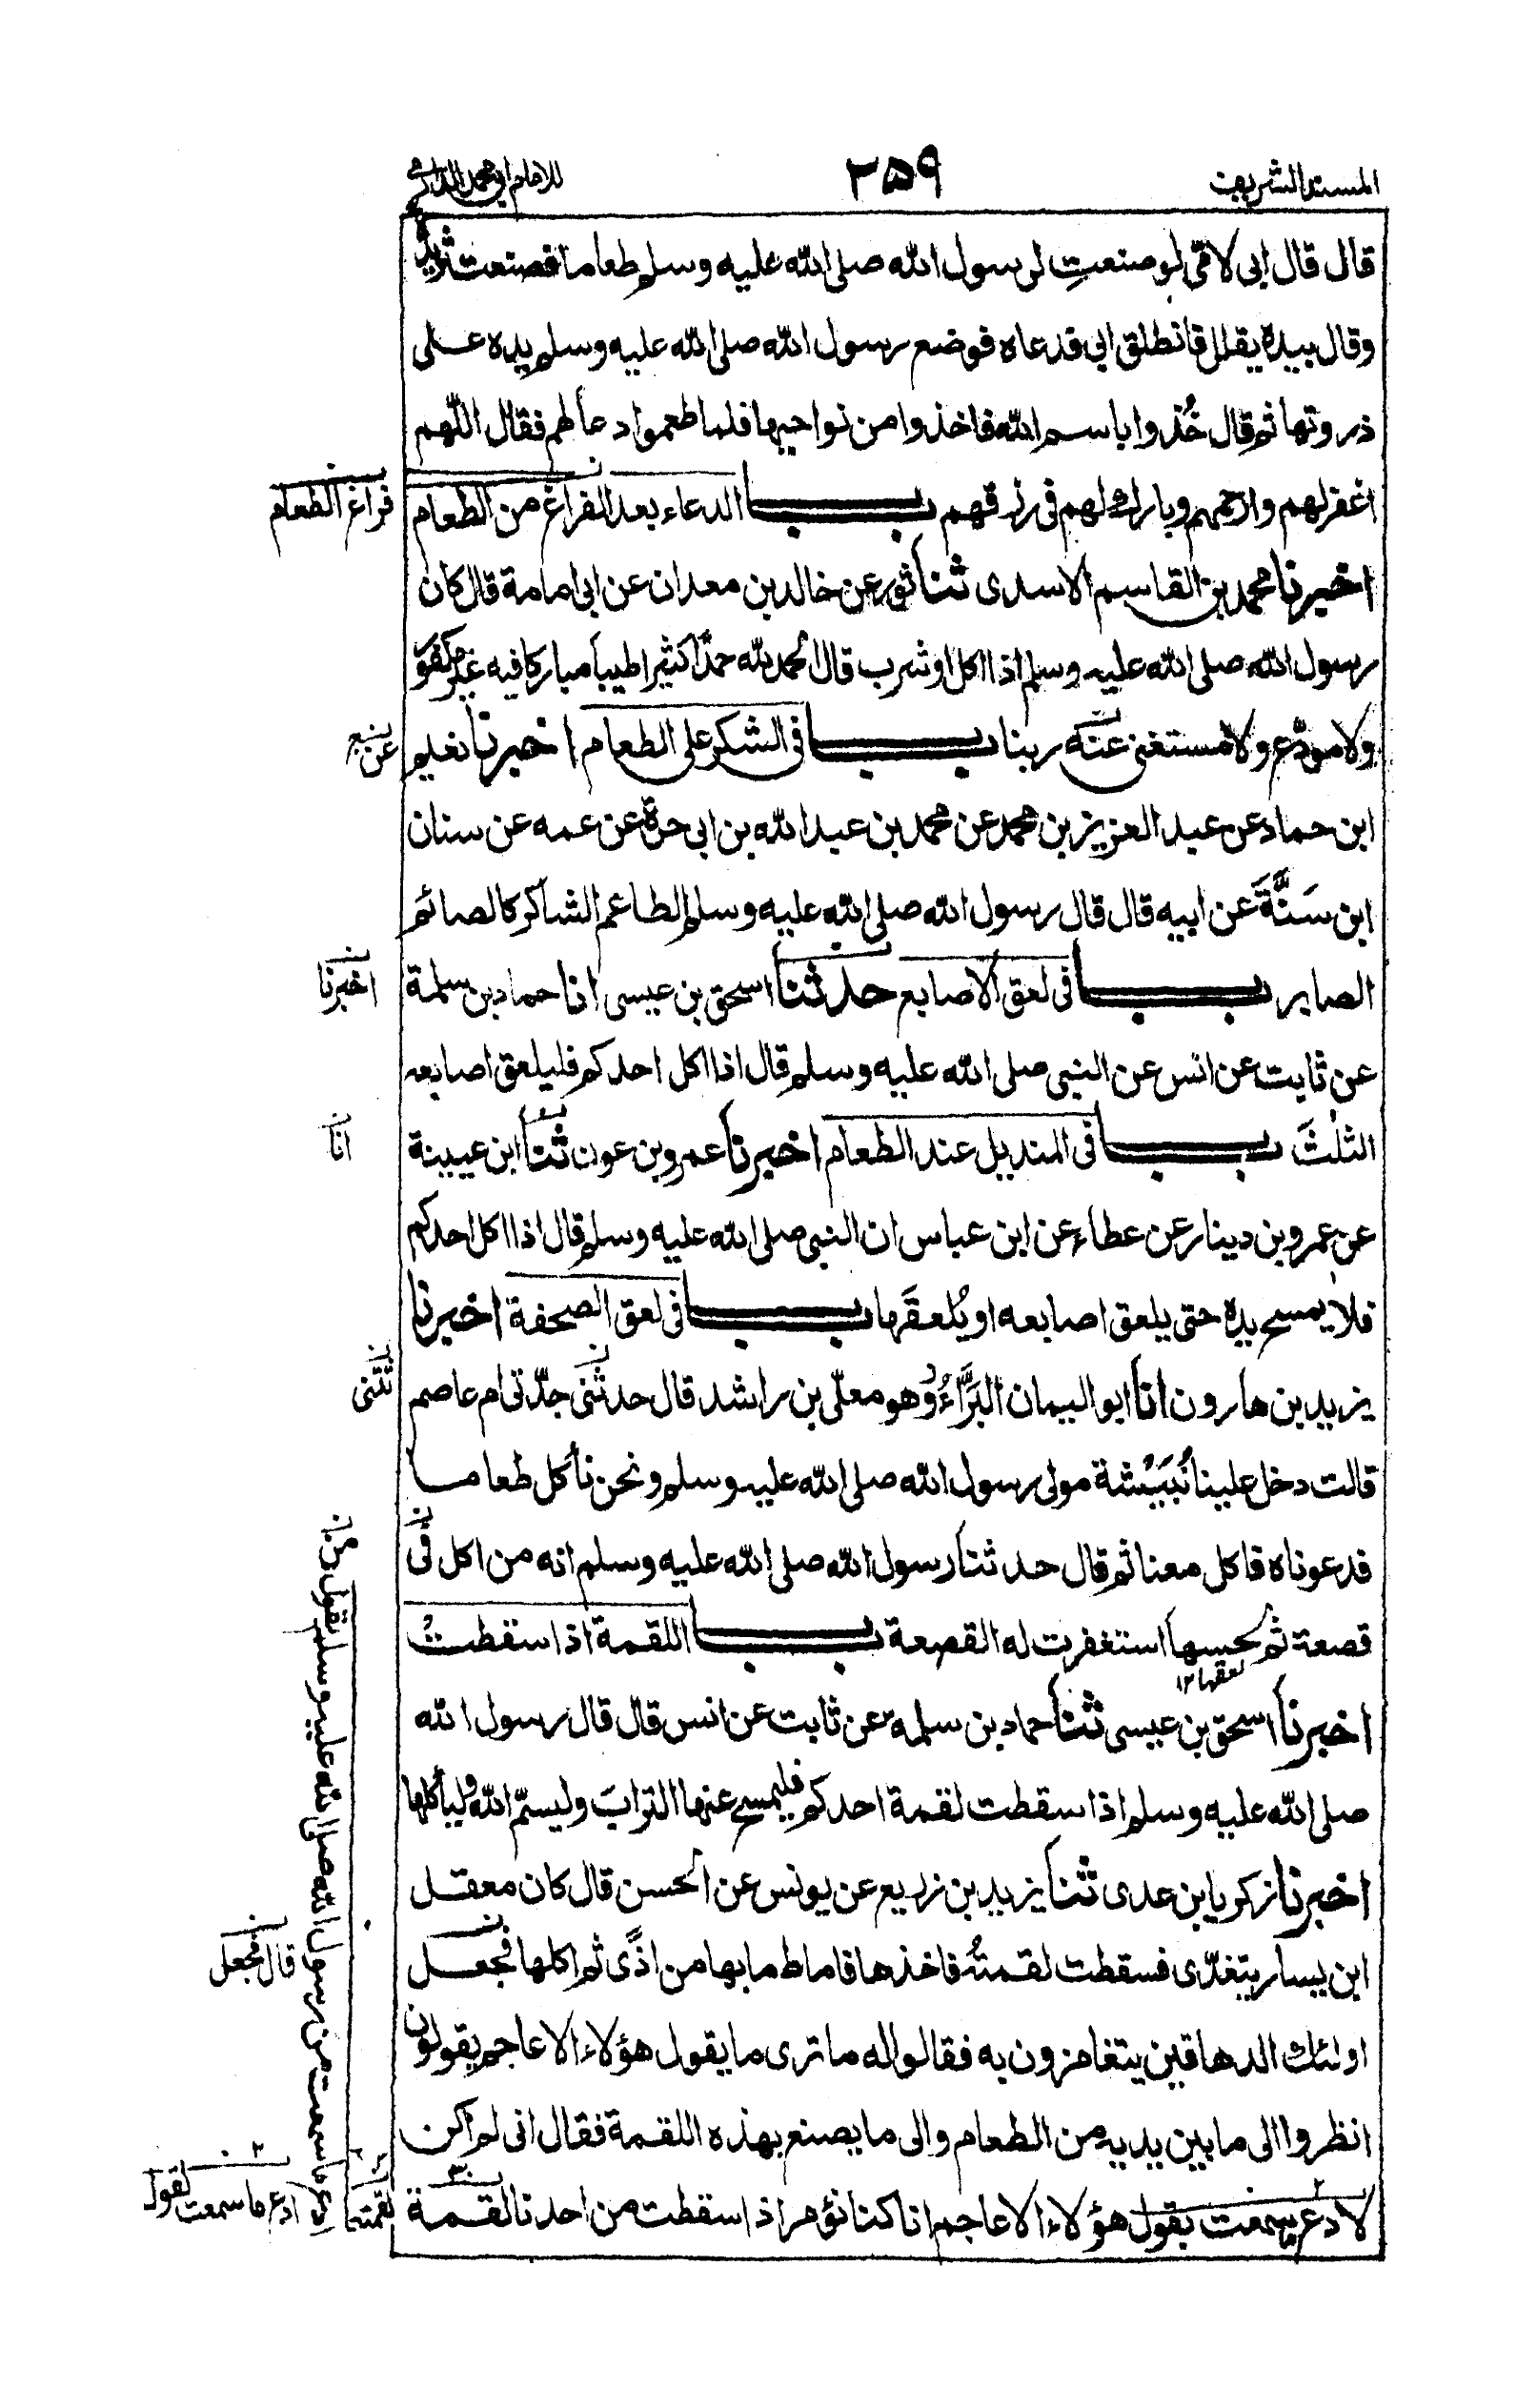 المسند الشريف
٢٥٩
للامام ابي محمد الدارمي
قال قال ابى لامّى لو صنعتِ لرسول الله صلى الله عليه وسلم طعاما فصنعت ثريدة
وقال بيده يقلل فانطلق ابي فدعاه فوضع رسول الله صلى الله عليه وسلم يده على
ذروتها ثم قال خُذوا باسم الله فاخذوا من نواحيها فلما طعموا دعا لهم فقال اللّهم
اغفر لهم وارحمهم وبارك لهم فى رزقهم باب الدعاء بعد الفراغ من الطعام
فراغ الطعام
اخبرنا محمد بن القاسم الاسدى ثنا ثور عن خالد بن معدان عن ابى امامة قال كان
رسول الله صلى الله عليه وسلم اذا اكل او شرب قال الحمد لله حمدًا كثيرا طيبا مباركا فيه غير مكفو
ولا مودّع ولا مستغنى عنه ربنا باب فى الشكر على الطعام اخبرنا نعيم
ابن حماد عن عبد العزيز بن محمد عن محمد بن عبد الله بن ابى حرة عن عمه عن سنان
ابن سَنَّةَ عن ابيه قال قال رسول الله صلى الله عليه وسلم الطاعم الشاكر كالصائم
الصابر باب فى لعق الاصابع حدثنا اسحق بن عيسى انا حماد بن سلمة
اخبرنا
عن ثابت عن انس عن النبى صلى الله عليه وسلم قال اذا اكل احدكم فليلعق اصابعه
الثلٰث باب فى المنديل عند الطعام اخبرنا عمرو بن عون ثنا ابن عيينة
انا
عن عمرو بن دينار عن عطاء عن ابن عباس ان النبى صلى الله عليه وسلم قال اذا اكل احدكم
فلا يمسح يده حتى يلعق اصابعه او يُلعقَها باب فى لعق الصحفة اخبرنا
يزيد بن هارون انا ابو اليمان البَرَّاءُ وهو معلّى بن راشد قال حدثنى جدّتى ام عاصم
ثتنى
قالت دخل علينا نُبَيْشة مولى رسول الله صلى الله عليه وسلم ونحن نأكل طعاما
فدعوناه فاكل معنا ثم قال حدثنا رسول الله صلى الله عليه وسلم انه من اكل فى
قصعة ثم لحسها استغفرت له القصعة باب اللقمة اذا سقطت
لعقها ١٢
اخبرنا اسحق بن عيسى ثنا حماد بن سلمة عن ثابت عن انس قال قال رسول الله
صلى الله عليه وسلم اذا سقطت لقمة احدكم فليمسح عنها التراب وليسمّ الله وليأكلها
اخبرنا زكريا ابن عدى ثنا يزيد بن زريع عن يونس عن الحسن قال كان معقل
ابن يسار يتغدّى فسقطت لقمتُه فاخذها فاماط ما بها من اذًى ثم اكلها فجعل
قال فجعل
اولئك الدهاقين يتغامزون به فقالوا له ما ترى ما يقول هؤلاء الاعاجم يقولون
انظروا الى ما بين يديه من الطعام والى ما يصنع بهذه اللقمة فقال انى لم اكن
لادع ما سمعت بقول هؤلاء الاعاجم انا كنا نؤمر اذا سقطت من احدنا لقمة
لقمته
ادع ما سمعت لقول
ما سمعت من رسول الله صلى الله عليه وسلم يقول